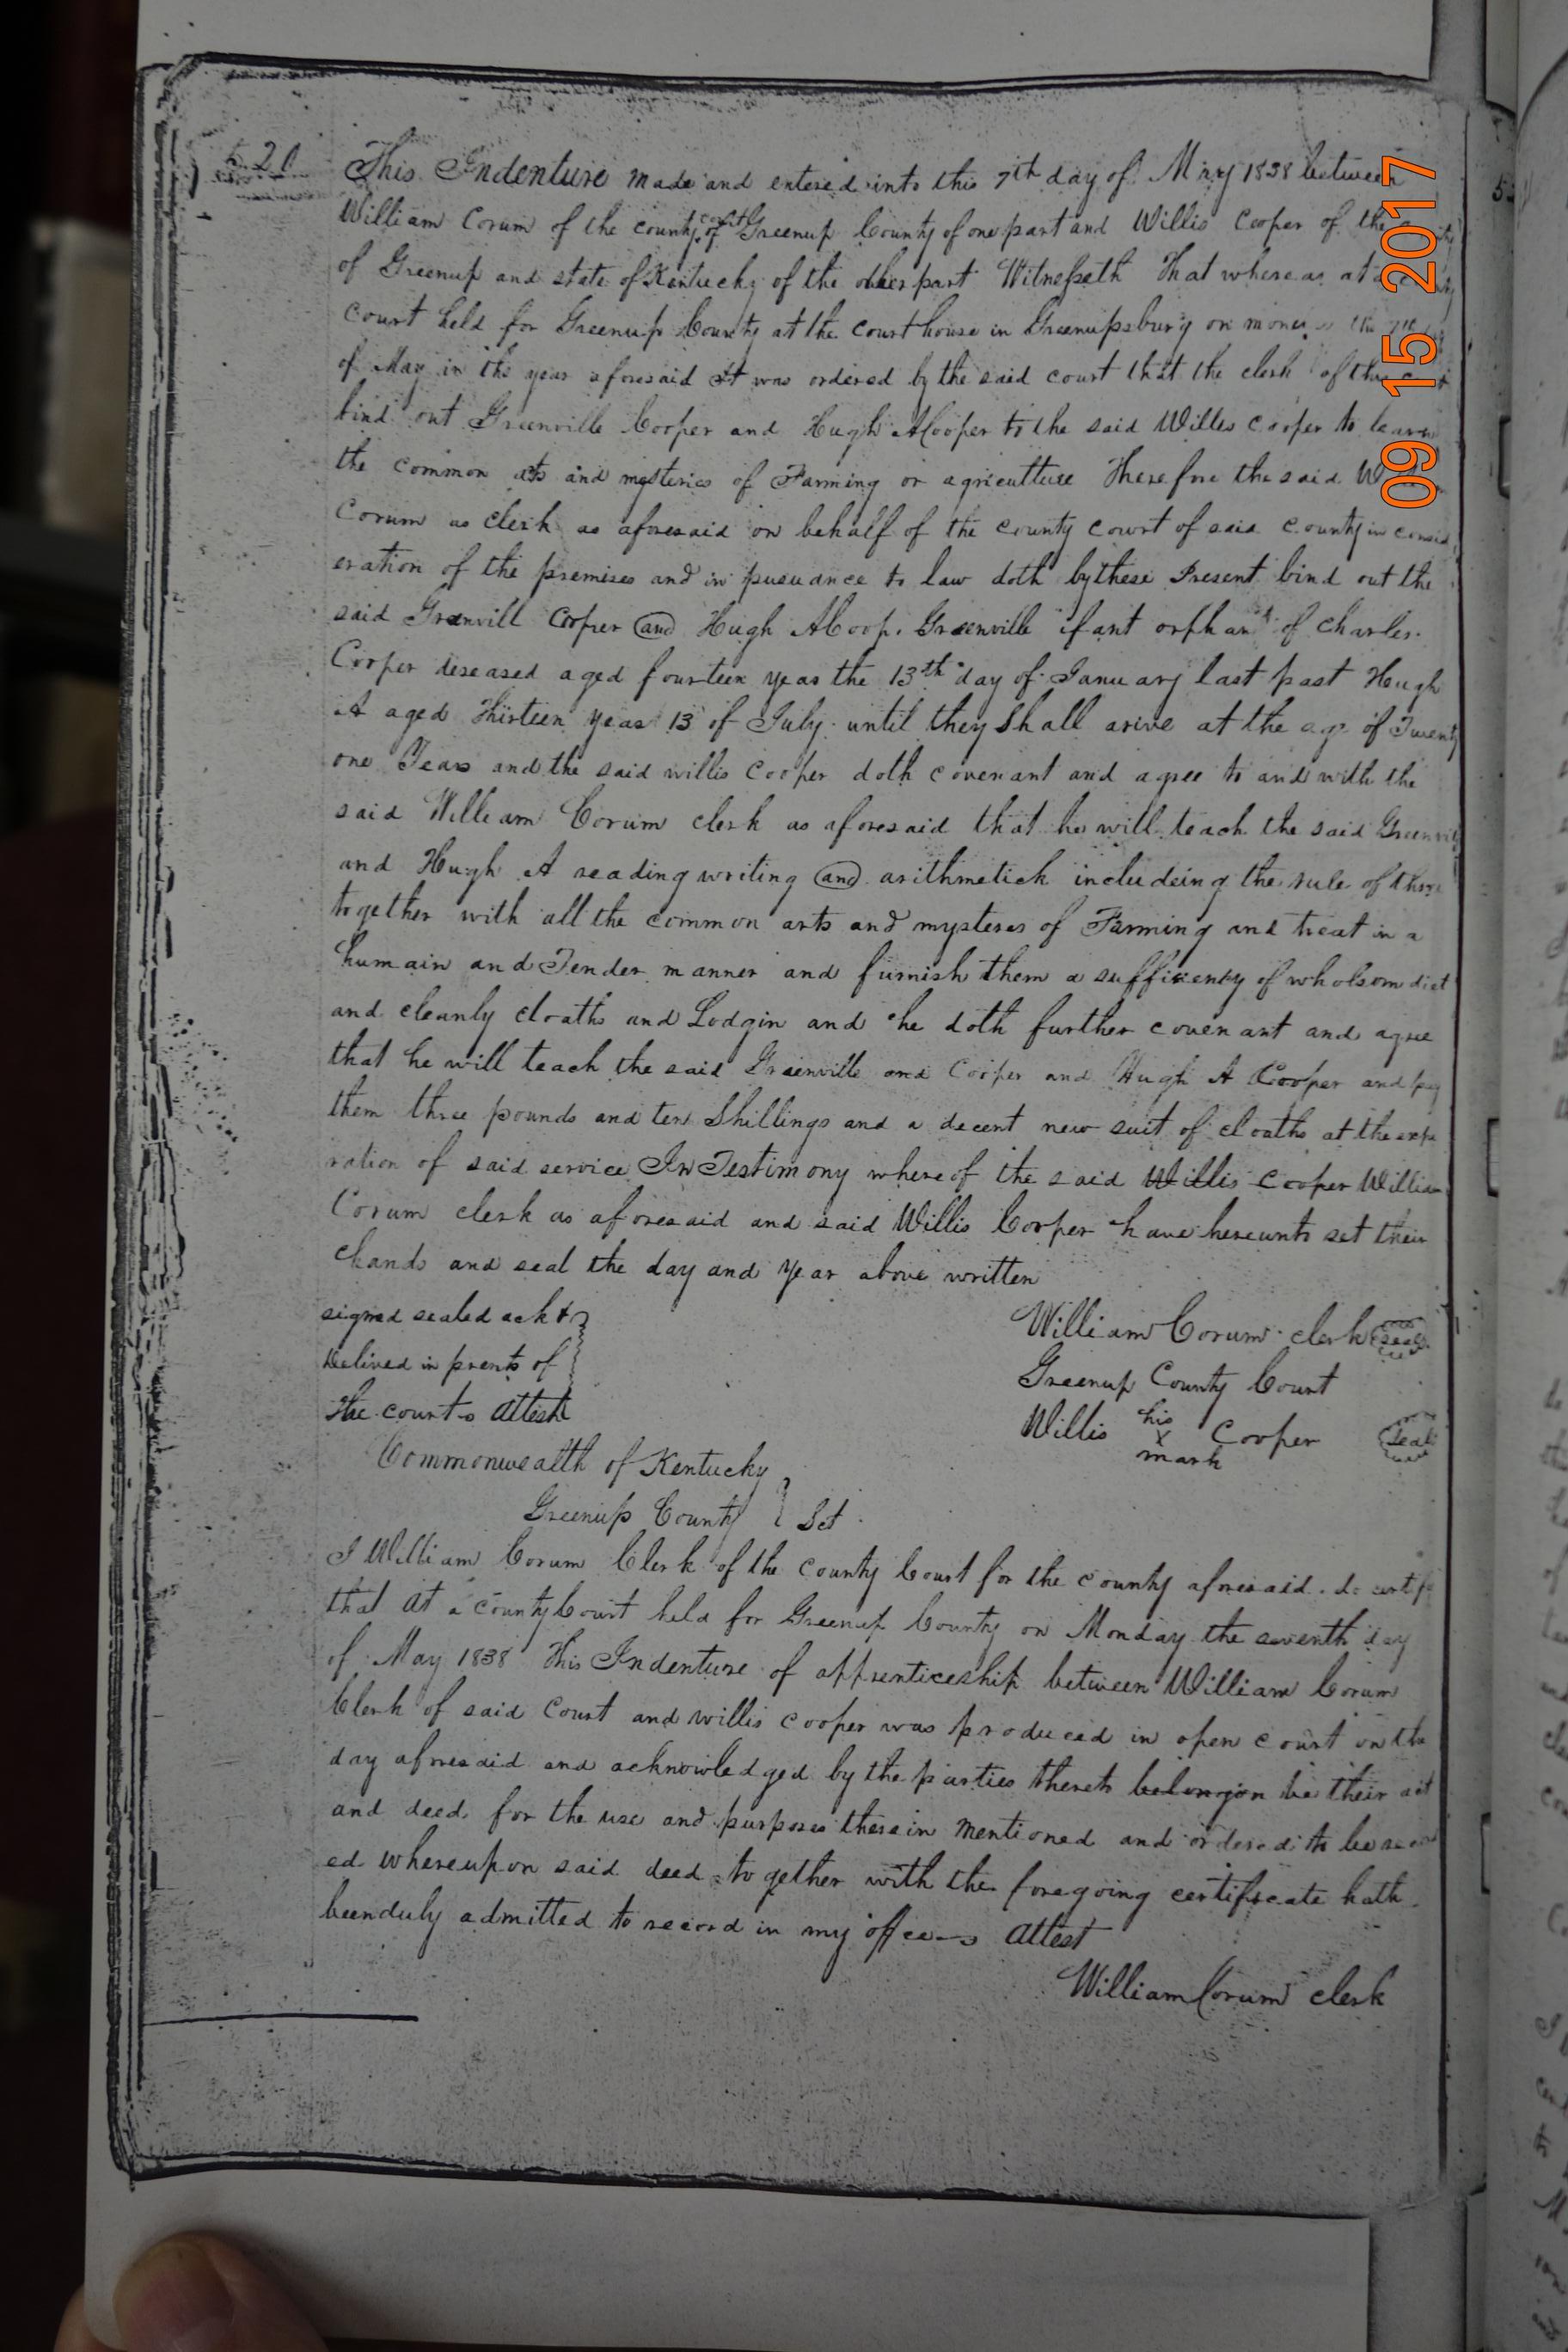 520
This Indenture made and entered into this 7th day of May 1838 between
William Corum of the county court of Greenup County of one part and Willis Cooper of the
of Greenup and state of Kentucky of the other part Witnesseth That where as at
court held for Greenup County at the court house in Greenupsburg on
of May in the year aforesaid it was ordered by the said court that the clerk of
bind out Greenville Cooper and Hugh A Cooper to the said Willis Cooper to learn
the common arts and mysteries of Farming or agriculture Therefore the said
Corum as clerk as aforesaid on behalf of the county court of said county in consid
eration of the premises and in pusuance to law doth by these Present bind out the
said Grenvill Cooper and Hugh A Coop. Greenville ifant orphans of Charles
Cooper deseased aged fourteen yeas the 13th day of January last past Hugh
A aged Thirteen yeas 13 of July until they shall arive at the age of Twenty
one Years and the said willis Cooper doth covenant and agree to and with the
said William Corum clerk as aforesaid that he will teach the said Greenvill
and Hugh A reading writing and arithmetick includeing the rule of three
together with all the common arts and mysteres of Farming and treat in a
humain and Tender manner and furnish them a sufficency of wholsom diet
and cleanly cloaths and Lodgin and he doth further covenant and agree
that he will teach the said Greenville and Cooper and Hugh A Cooper and pay
them three pounds and ten Shillings and a decent new suit of cloaths at the expi
ration of said service In Testimony whereof the said Willis Cooper William
Corum clerk as aforesaid and said Willis Cooper have hereunto set their
hands and seal the day and year above written
signed sealed ackd
Delived in prents of
the court attest
William Corum clerk seal
Greenup County Court
Willis his x mark Cooper seal
Commonwealth of Kentucky
Greenup County } Sct
I William Corum Clerk of the county Court for the county aforesaid do certify
that at a county Court held for Greenup County on Monday the seventh day
of May 1838 This Indenture of apprenticeship between William Corum
Clerk of said Court and willis Cooper was produced in open court on the
day aforesaid and acknowledged by the parties thereto belongon be their act
and deed for the use and purposes therein mentioned and ordered to be record
ed whereupon said deed together with the foregoing certificate hath
been duly admitted to record in my office attest
William Corum clerk
09 15 2017